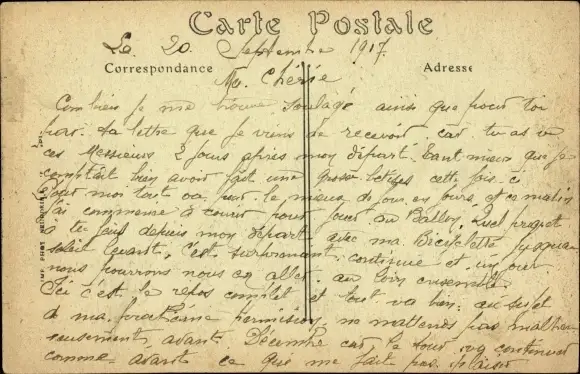 Carte Postale
Le 20 Septembre 1917.
Correspondance
Adresse
Ma Chérie
Combien je me trouve soulagé ainsi que pour toi
par ta lettre que je viens de recevoir, car tu as vu
ces Messieurs 2 jours après mon départ. Tant mieux que je
comptais bien avoir fait une grosse bêtise cette fois ci
Pour moi tout va pour le mieux de jour en jour, et ce matin
j'ai commencé à courir pour jouer au Ballon. Quel progrès
à tu fais depuis mon départ avec ma Bicyclette
c'est surprenant, continue et un jour
nous pourrons nous en aller au loin ensemble.
Ici c'est le repos complet et tout va bien; au sujet
de ma prochaine permission, ne m'attends pas malheu-
reusement avant Décembre car le tour va continuer
comme avant ce que me fait pas plaisir